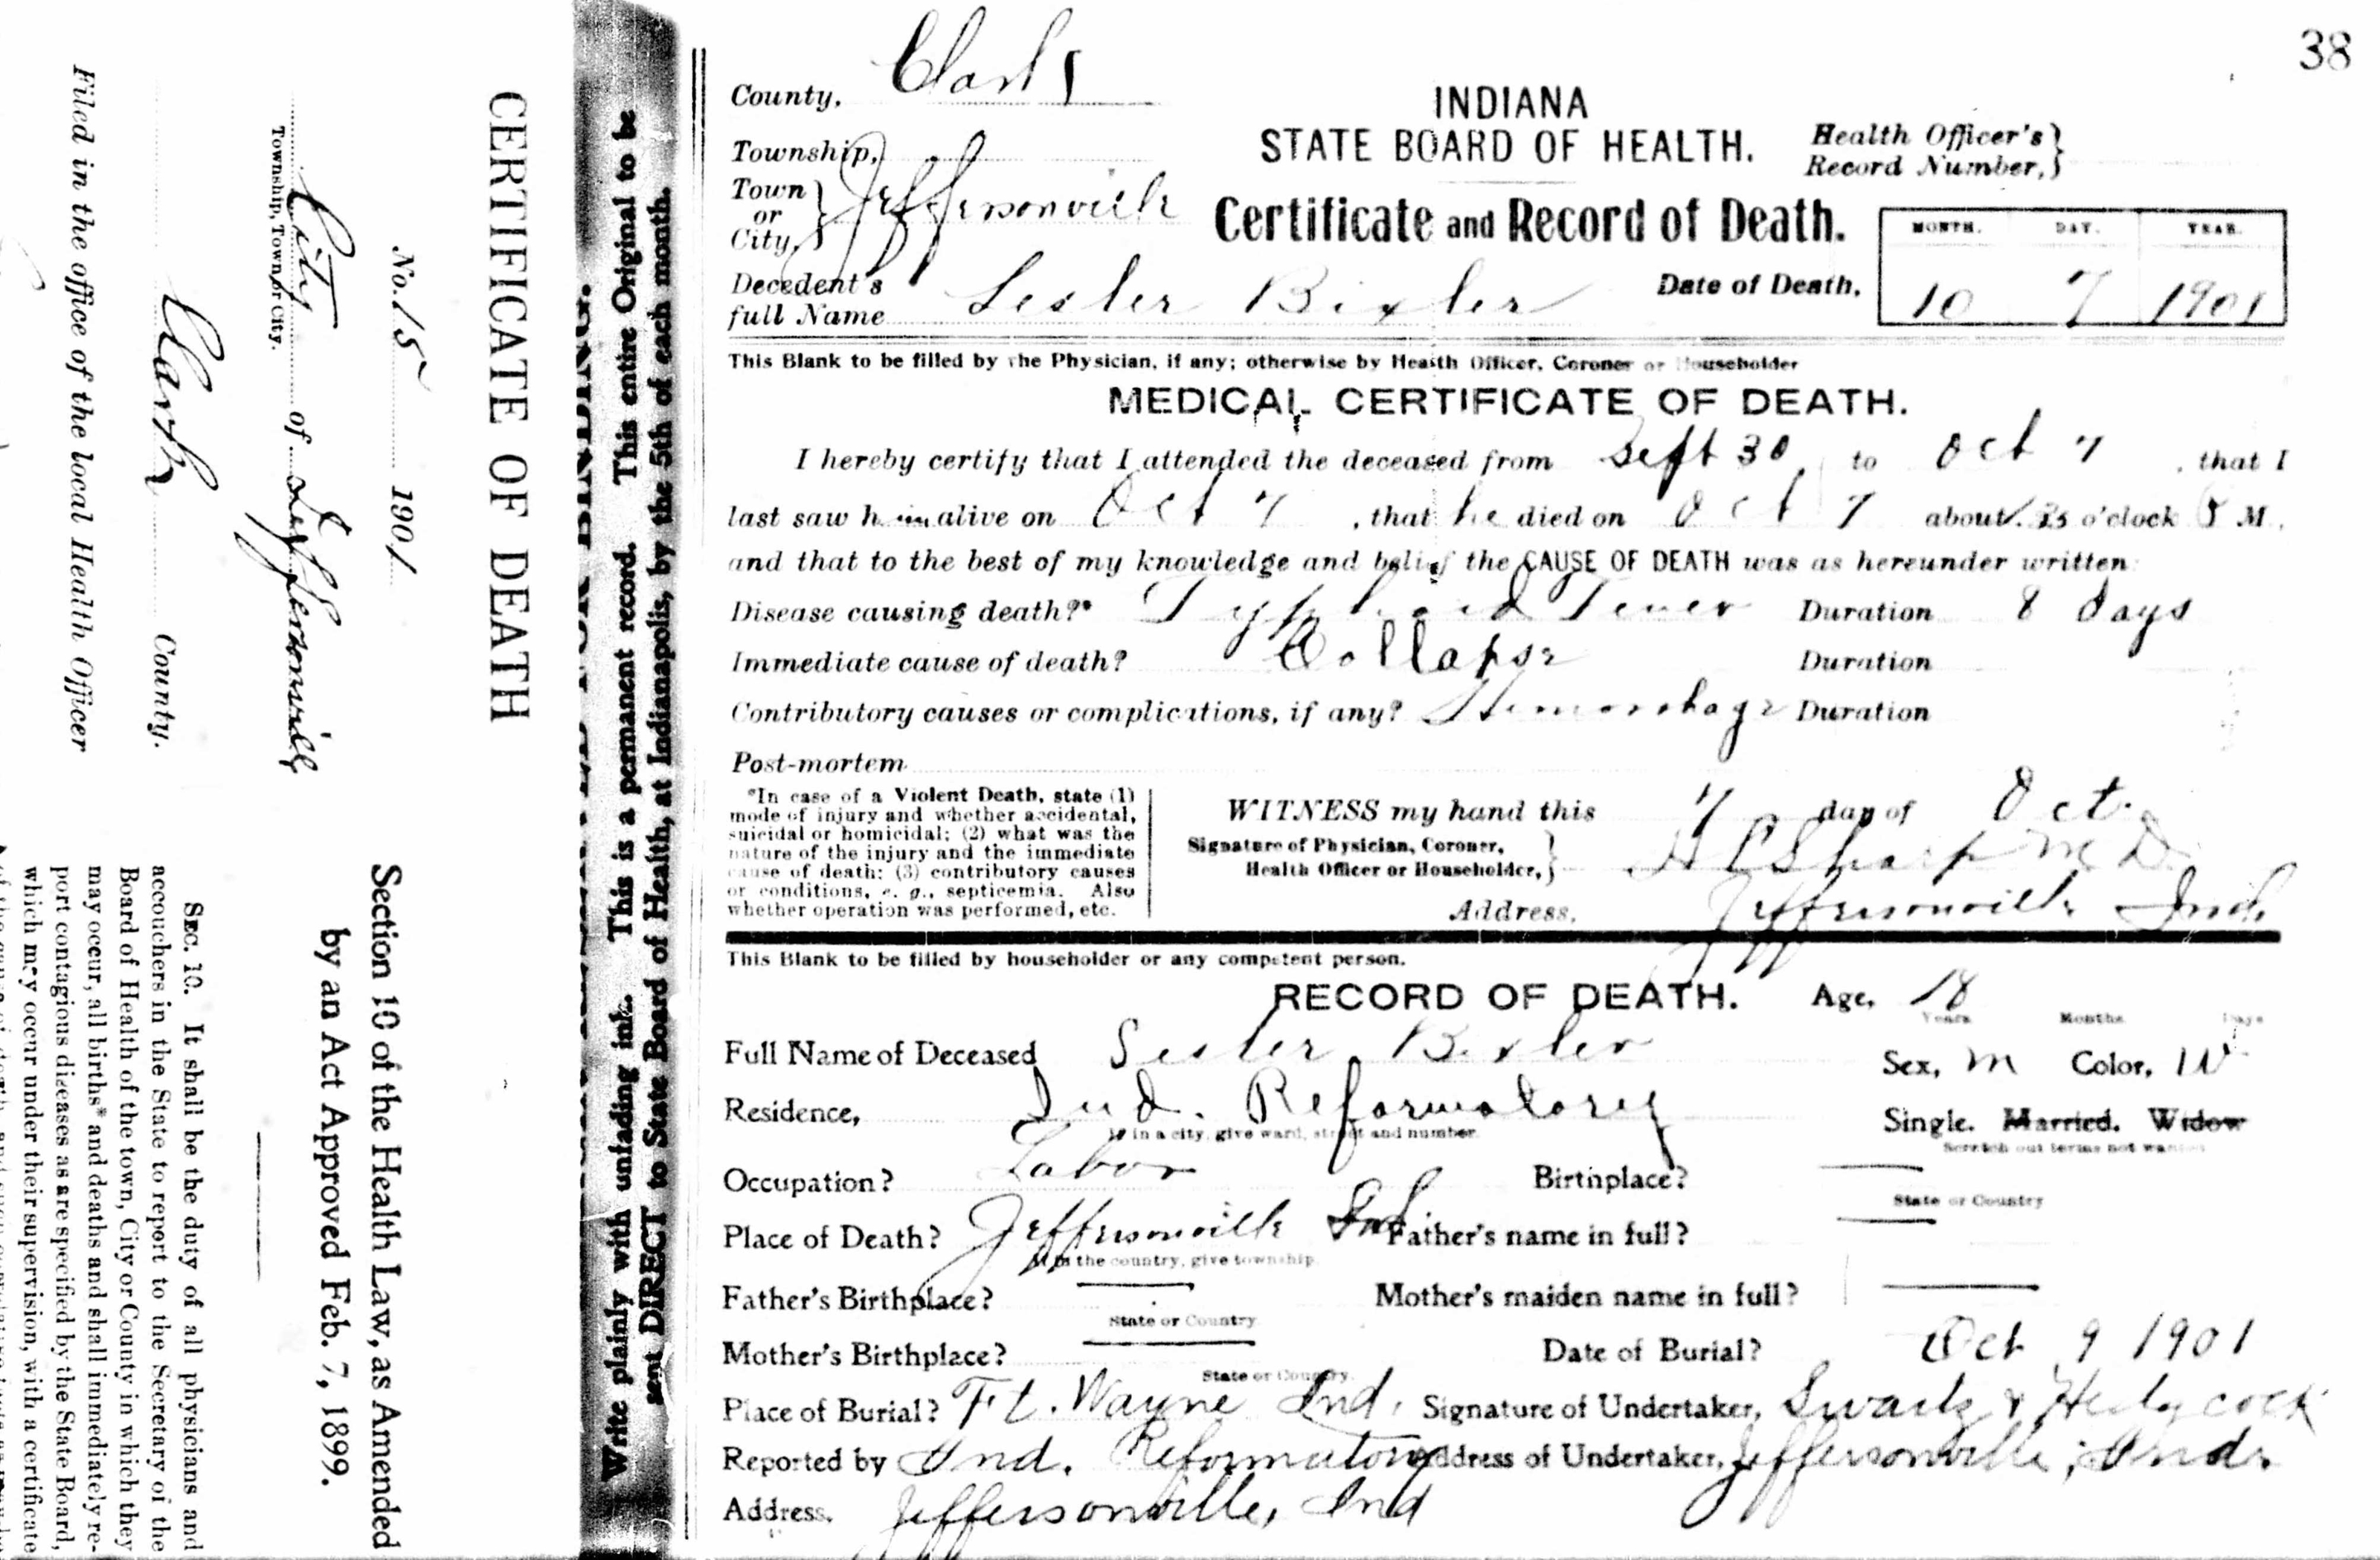 38
County, Clark
INDIANA
STATE BOARD OF HEALTH.
Health Officer's
Record Number,
Township,
Town or City, Jeffersonville
Certificate and Record of Death.
MONTH. DAY. YEAR.
Decedent's full Name Lesler Bixler
Date of Death, 10 7 1901
This Blank to be filled by the Physician, if any; otherwise by Health Officer, Coroner or Householder
MEDICAL CERTIFICATE OF DEATH.
I hereby certify that I attended the deceased from Sept 30, to Oct 7, that I
last saw him alive on Oct 7, that he died on Oct 7 about o'clock M.,
and that to the best of my knowledge and belief the CAUSE OF DEATH was as hereunder written:
Disease causing death?* Typhoid Fever Duration 8 days
Immediate cause of death? Collapse Duration
Contributory causes or complications, if any? Hemorrhage Duration
Post-mortem
*In case of a Violent Death, state (1)
mode of injury and whether accidental,
suicidal or homicidal; (2) what was the
nature of the injury and the immediate
cause of death; (3) contributory causes
or conditions, e. g., septicemia. Also
whether operation was performed, etc.
WITNESS my hand this 7 day of Oct.
Signature of Physician, Coroner,
Health Officer or Householder, Sharp M D
Address, Jeffersonville Ind.
This Blank to be filled by householder or any competent person.
RECORD OF DEATH. Age, 18
Years Months Days
Full Name of Deceased Lesler Bixler
Sex, M Color, W
Residence, Ind. Reformatory
If in a city, give ward, street and number.
Single. Married. Widow
Scratch out terms not wanted
Occupation? Labor Birthplace? —
State or Country
Place of Death? Jeffersonville Ind. Father's name in full? —
If in the country, give township.
Father's Birthplace? — Mother's maiden name in full? —
State or Country
Mother's Birthplace? — Date of Burial? Oct 9 1901
State or Country.
Place of Burial? Ft. Wayne Ind. Signature of Undertaker, Swartz &
Reported by Ind. Reformatory Address of Undertaker, Jeffersonville, Ind.
Address, Jeffersonville, Ind
Write plainly with unfading ink. This is a permanent record. This entire Original to be
sent DIRECT to State Board of Health, at Indianapolis, by the 5th of each month.
CERTIFICATE OF DEATH
No. 15 1901
City of Jeffersonville
Township, Town or City.
Clark County.
Filed in the office of the local Health Officer
Section 10 of the Health Law, as Amended
by an Act Approved Feb. 7, 1899.
SEC. 10. It shall be the duty of all physicians and
accouchers in the State to report to the Secretary of the
Board of Health of the town, City or County in which they
may occur, all births* and deaths and shall immediately re-
port contagious diseases as are specified by the State Board,
which may occur under their supervision, with a certificate